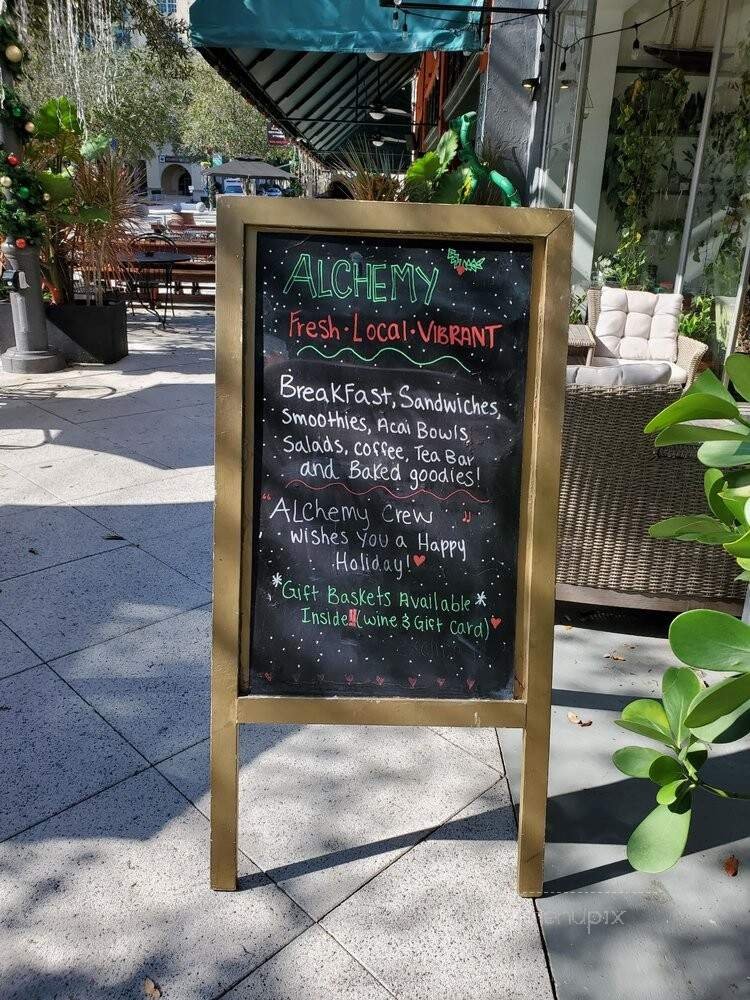 ALCHEMY
Fresh · Local · VIBRANT
BreakFast, Sandwiches,
Smoothies, Acai Bowls,
Salads, coffee, Tea Bar
and Baked goodies!
"ALchemy Crew "
wishes You a Happy
Holiday! ♥
*Gift Baskets Available *
Inside!! (wine & Gift card) ♥